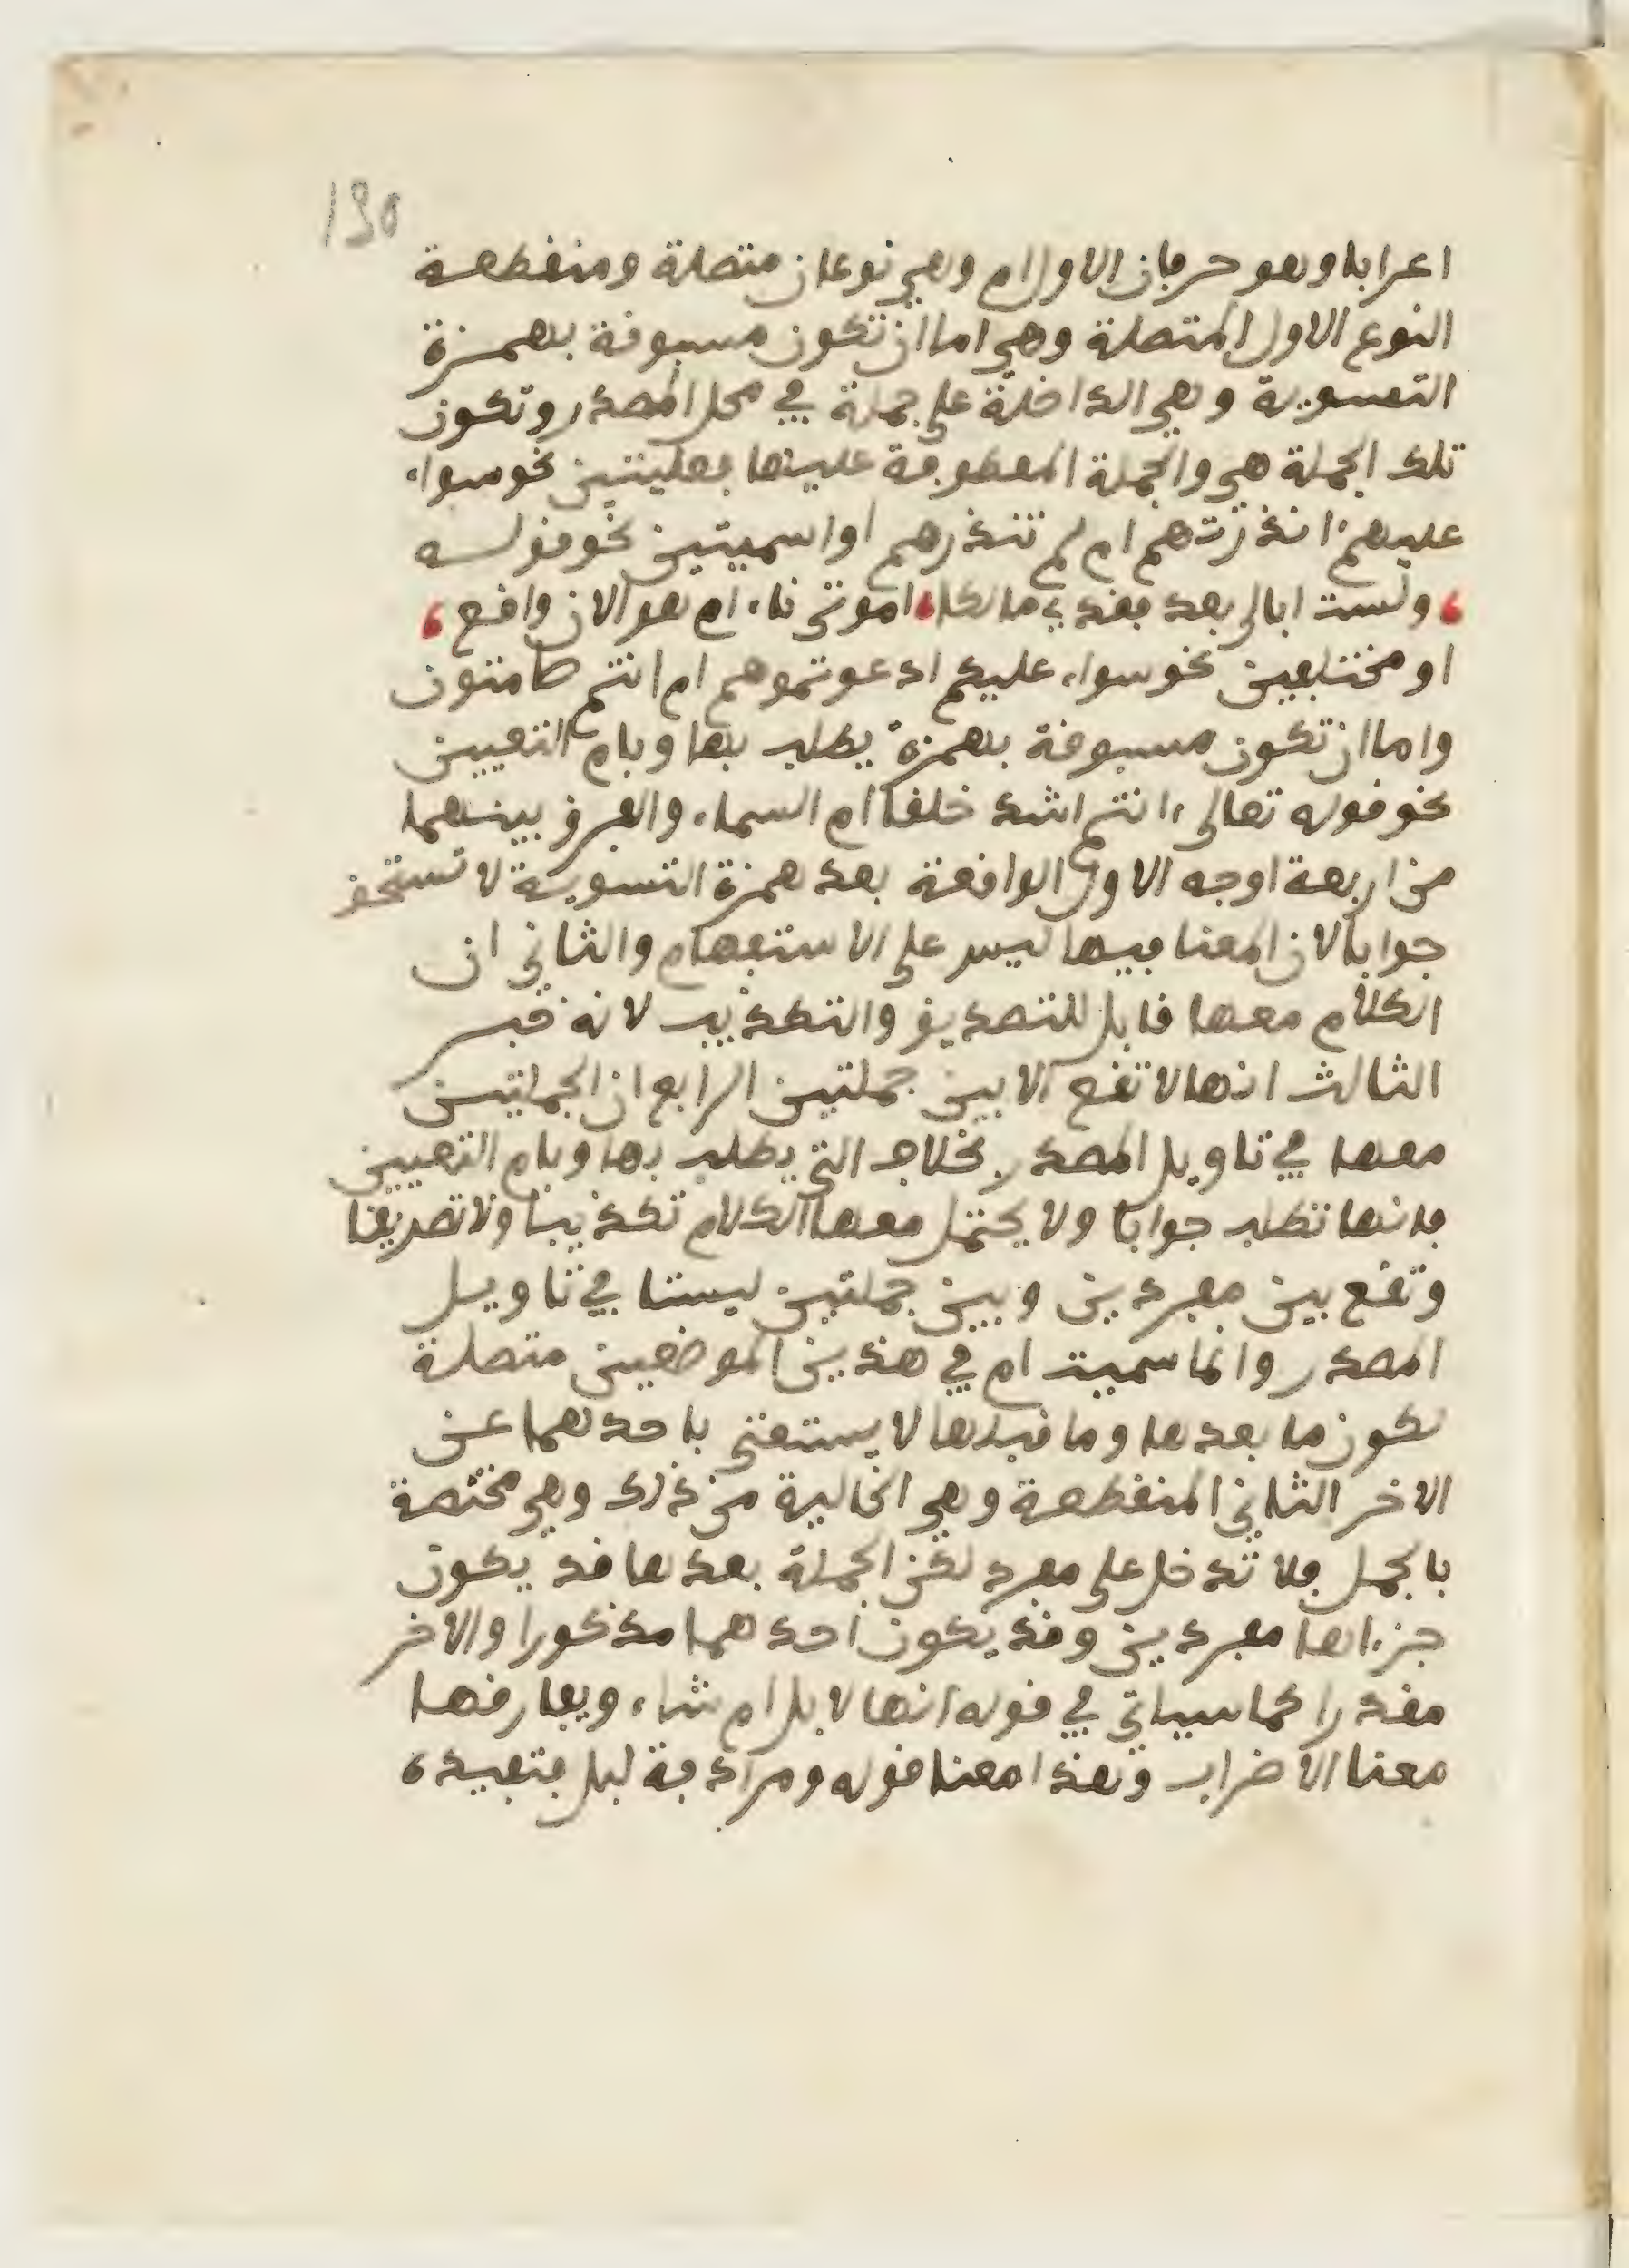 130
اعرابا وهو حرفان الاول ام وهي نوعان متصلة ومنقطعة
النوع الاول المتصلة وهي اما ان تكون مسبوقة بهمزة
التسوية وهي الداخلة على جملة في محل المصدر وتكون
تلك الجملة هي والجملة المعطوفة عليها فعليتين نحو سواء
عليهم ءانذرتهم ام لم تنذرهم او اسميتين نحو قولــه
، ولست ابالي بعد فقدي مالكا ، اموتي ناء ام هو الان واقع ،
او مختلفين نحو سواء عليكم ادعوتموهم ام انتم صامتون
واما ان تكون مسبوقة بهمزة يطلب بها وبام التعيين
نحو قوله تعالى ءانتم اشد خلفا ام السماء والفرق بينهما
من اربعة اوجه الاول الواقعة بعد همزة التسوية لا تستحق
جوابا لان المعنا فيها ليس على الاستفهام والثاني ان
الكلام معها قابل للتصديق والتكذيب لانه خبر
الثالث انها لا تقع الا بين جملتين الرابع ان الجملتين
معها في تاويل المصدر بخلاف التي يطلب بها وبام التعيين
فانها تطلب جوابا ولا يحتمل معها الكلام تكذيبا ولا تصديقا
وتقع بين مفردين وبين جملتين ليستا في تاويل
المصدر وانما سميت ام في هذين الموضعين متصلة
لكون ما بعدها وما قبلها لا يستغنى باحدهما عن
الاخر الثاني المنقطعة وهي الخالية من ذلك وهي مختصة
بالجمل فلا تدخل على مفرد لكن الجملة بعدها قد يكون
جزءاها مفردين وقد يكون احدهما مذكورا والاخر
مقدرا كما سياتي في قوله انها لابل ام شاء ويفارقها
معنا الاضراب وهذا معنا قوله ومرادفة لبل فتفيده